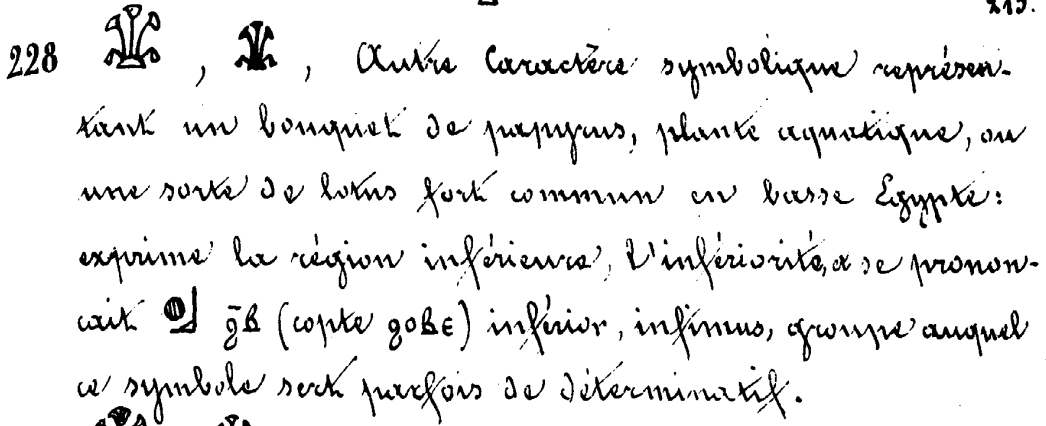 215.
228 𓇇, 𓇇, Autre Caractère symbolique représen-
tant un bouquet de papyrus, plante aquatique, ou
une sorte de lotus fort commun en basse Egypte:
exprime la région inférieure, l'infériorité, & se pronon-
cait 𓐍𓃀 ḡb (copte ϩⲟⲃⲉ) inférior, infimus, groupe auquel
ce symbole sert parfois de déterminatif.